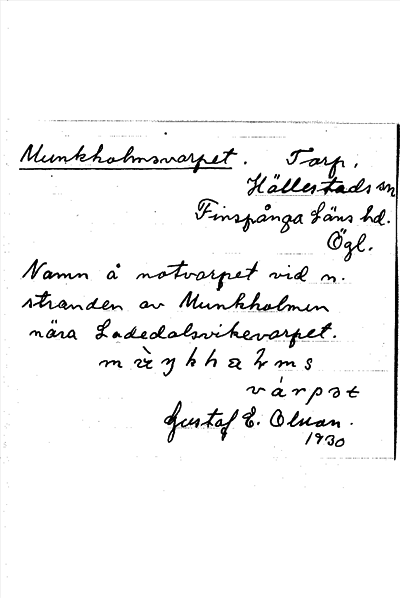 Munkholmsvarpet. Torp.
Hällestads sn
Finspånga läns hd.
Ögl.
Namn å notvarpet vid n.
stranden av Munkholmen
nära Ladedalsvikevarpet.
várpət
Gustaf E. Olsson.
1930